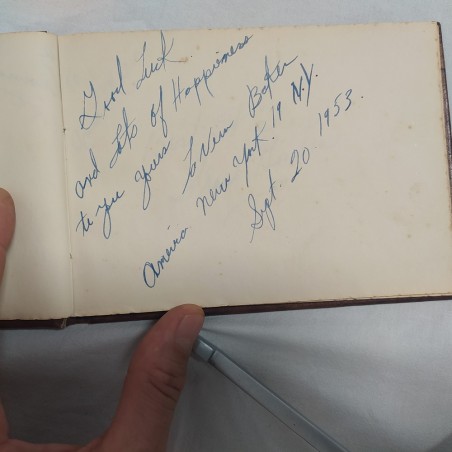 Good Luck
and Lots of Happiness
to you Yours
LaVern Baker
America New York. 19 N.Y.
Sept. 20. 1953.